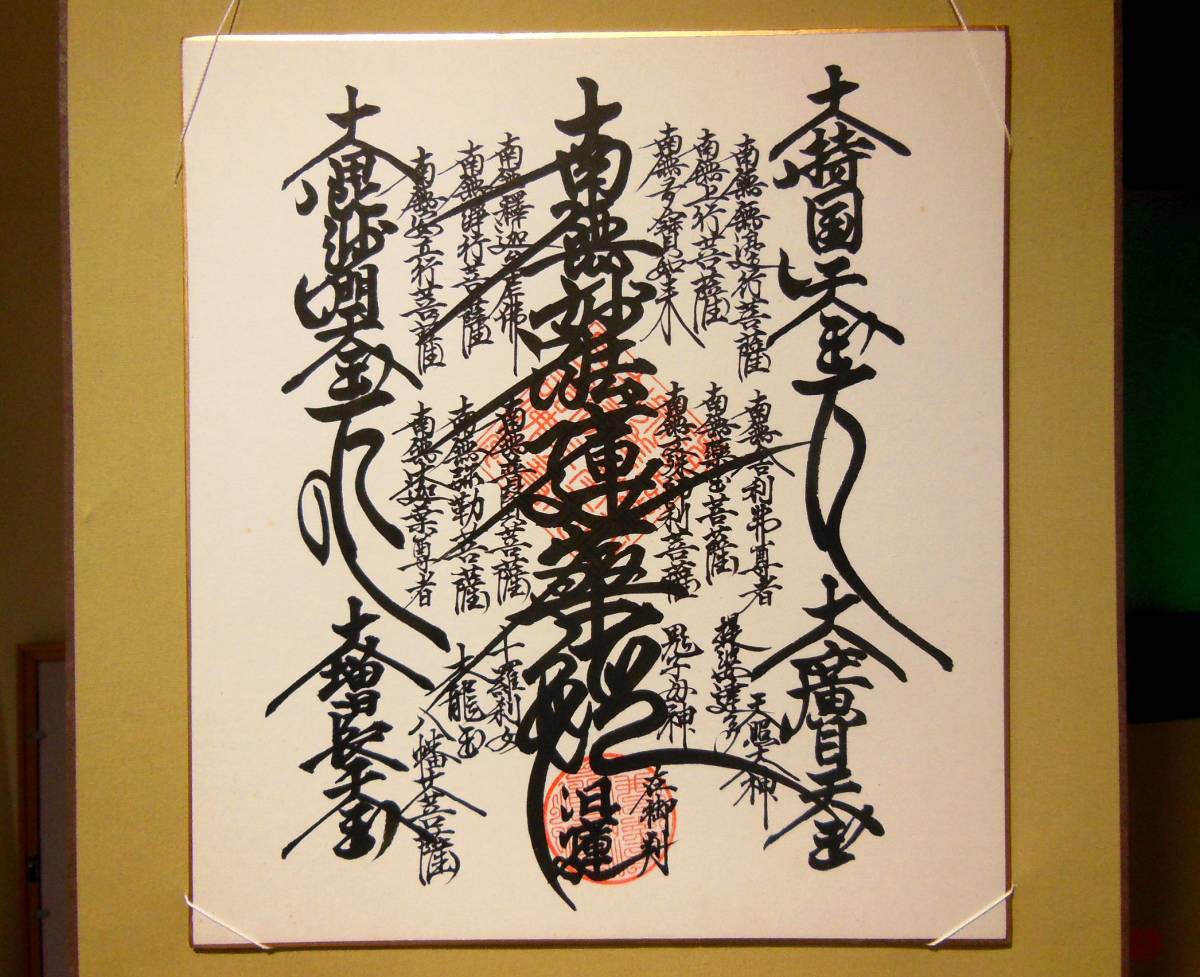 大持国天王
南無無邊行菩薩
南無上行菩薩
南無多寳如来
南無妙法蓮華経
南無釋迦牟尼佛
南無浄行菩薩
南無安立行菩薩
大毘沙門天王
南無舎利弗尊者
南無薬王菩薩
南無文殊師利菩薩
南無普賢菩薩
南無弥勒菩薩
南無大迦葉尊者
大廣目天王
天照大神
提婆達多
鬼子母神
十羅刹女
大龍王
八幡大菩薩
大増長天王
在御判
日蓮